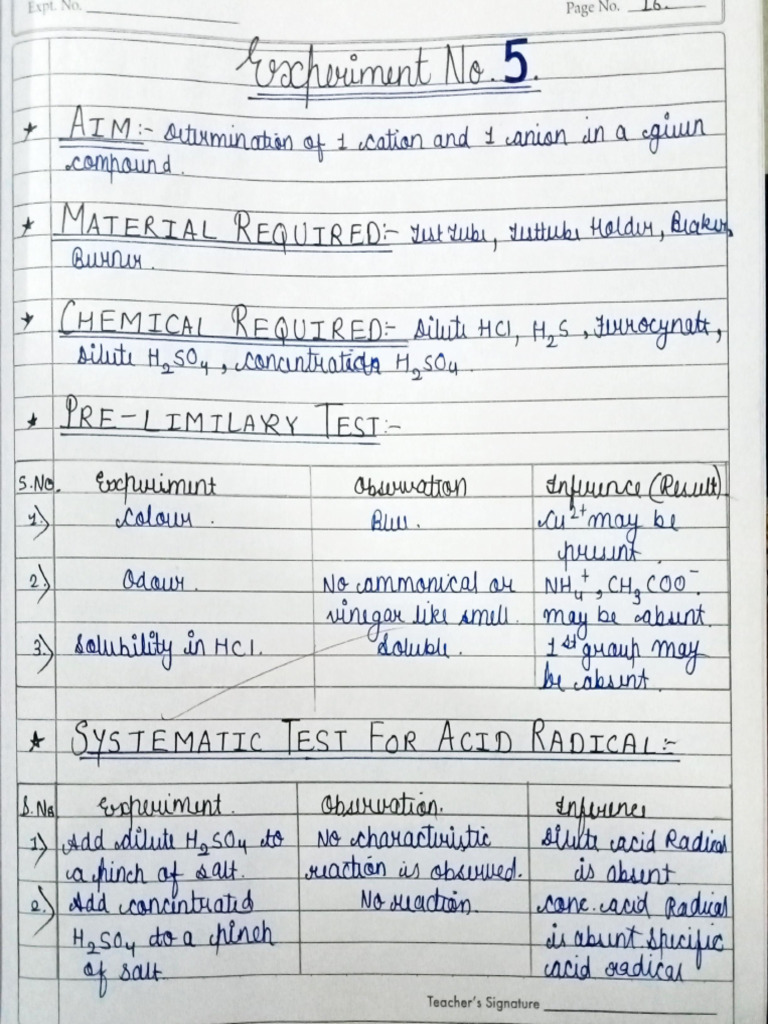 Expt. No.
Page No. 16.
Experiment No. 5.
★ AIM:- Determination of 1 cation and 1 anion in a given
compound.
★ MATERIAL REQUIRED:- Test Tube, Testtube Holder, Beaker,
Burner.
★ CHEMICAL REQUIRED:- Dilute HCl, H₂S, Ferrocynate,
Dilute H₂SO₄, concentration H₂SO₄.
★ PRE-LIMILARY TEST:-
S.No. Experiment Observation Inference (Result)
1.) Colour. Blue. Cu²⁺ may be
present.
2.) Odour. No ammonical or NH₄⁺, CH₃COO⁻
vinegar like smell. may be absent.
3.) Solubility in HCl. Soluble. 1st group may
be absent.
★ SYSTEMATIC TEST FOR ACID RADICAL:-
S.No Experiment. Observation. Inference
1.) Add dilute H₂SO₄ to No characteristic Dilute acid Radical
a pinch of salt. reaction is observed. is absent
2.) Add concentrated No reaction. conc. acid Radical
H₂SO₄ to a pinch is absent specific
of salt. acid radical
Teacher's Signature